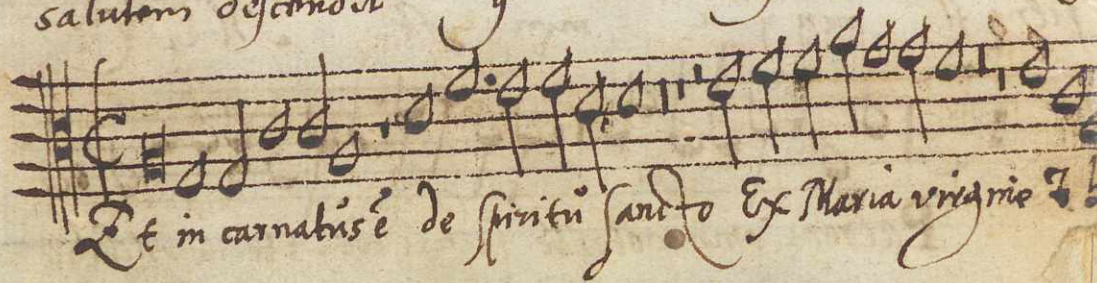 salutem descendit
Et in carnatus ē de spiritu sancto Ex Maria virgine